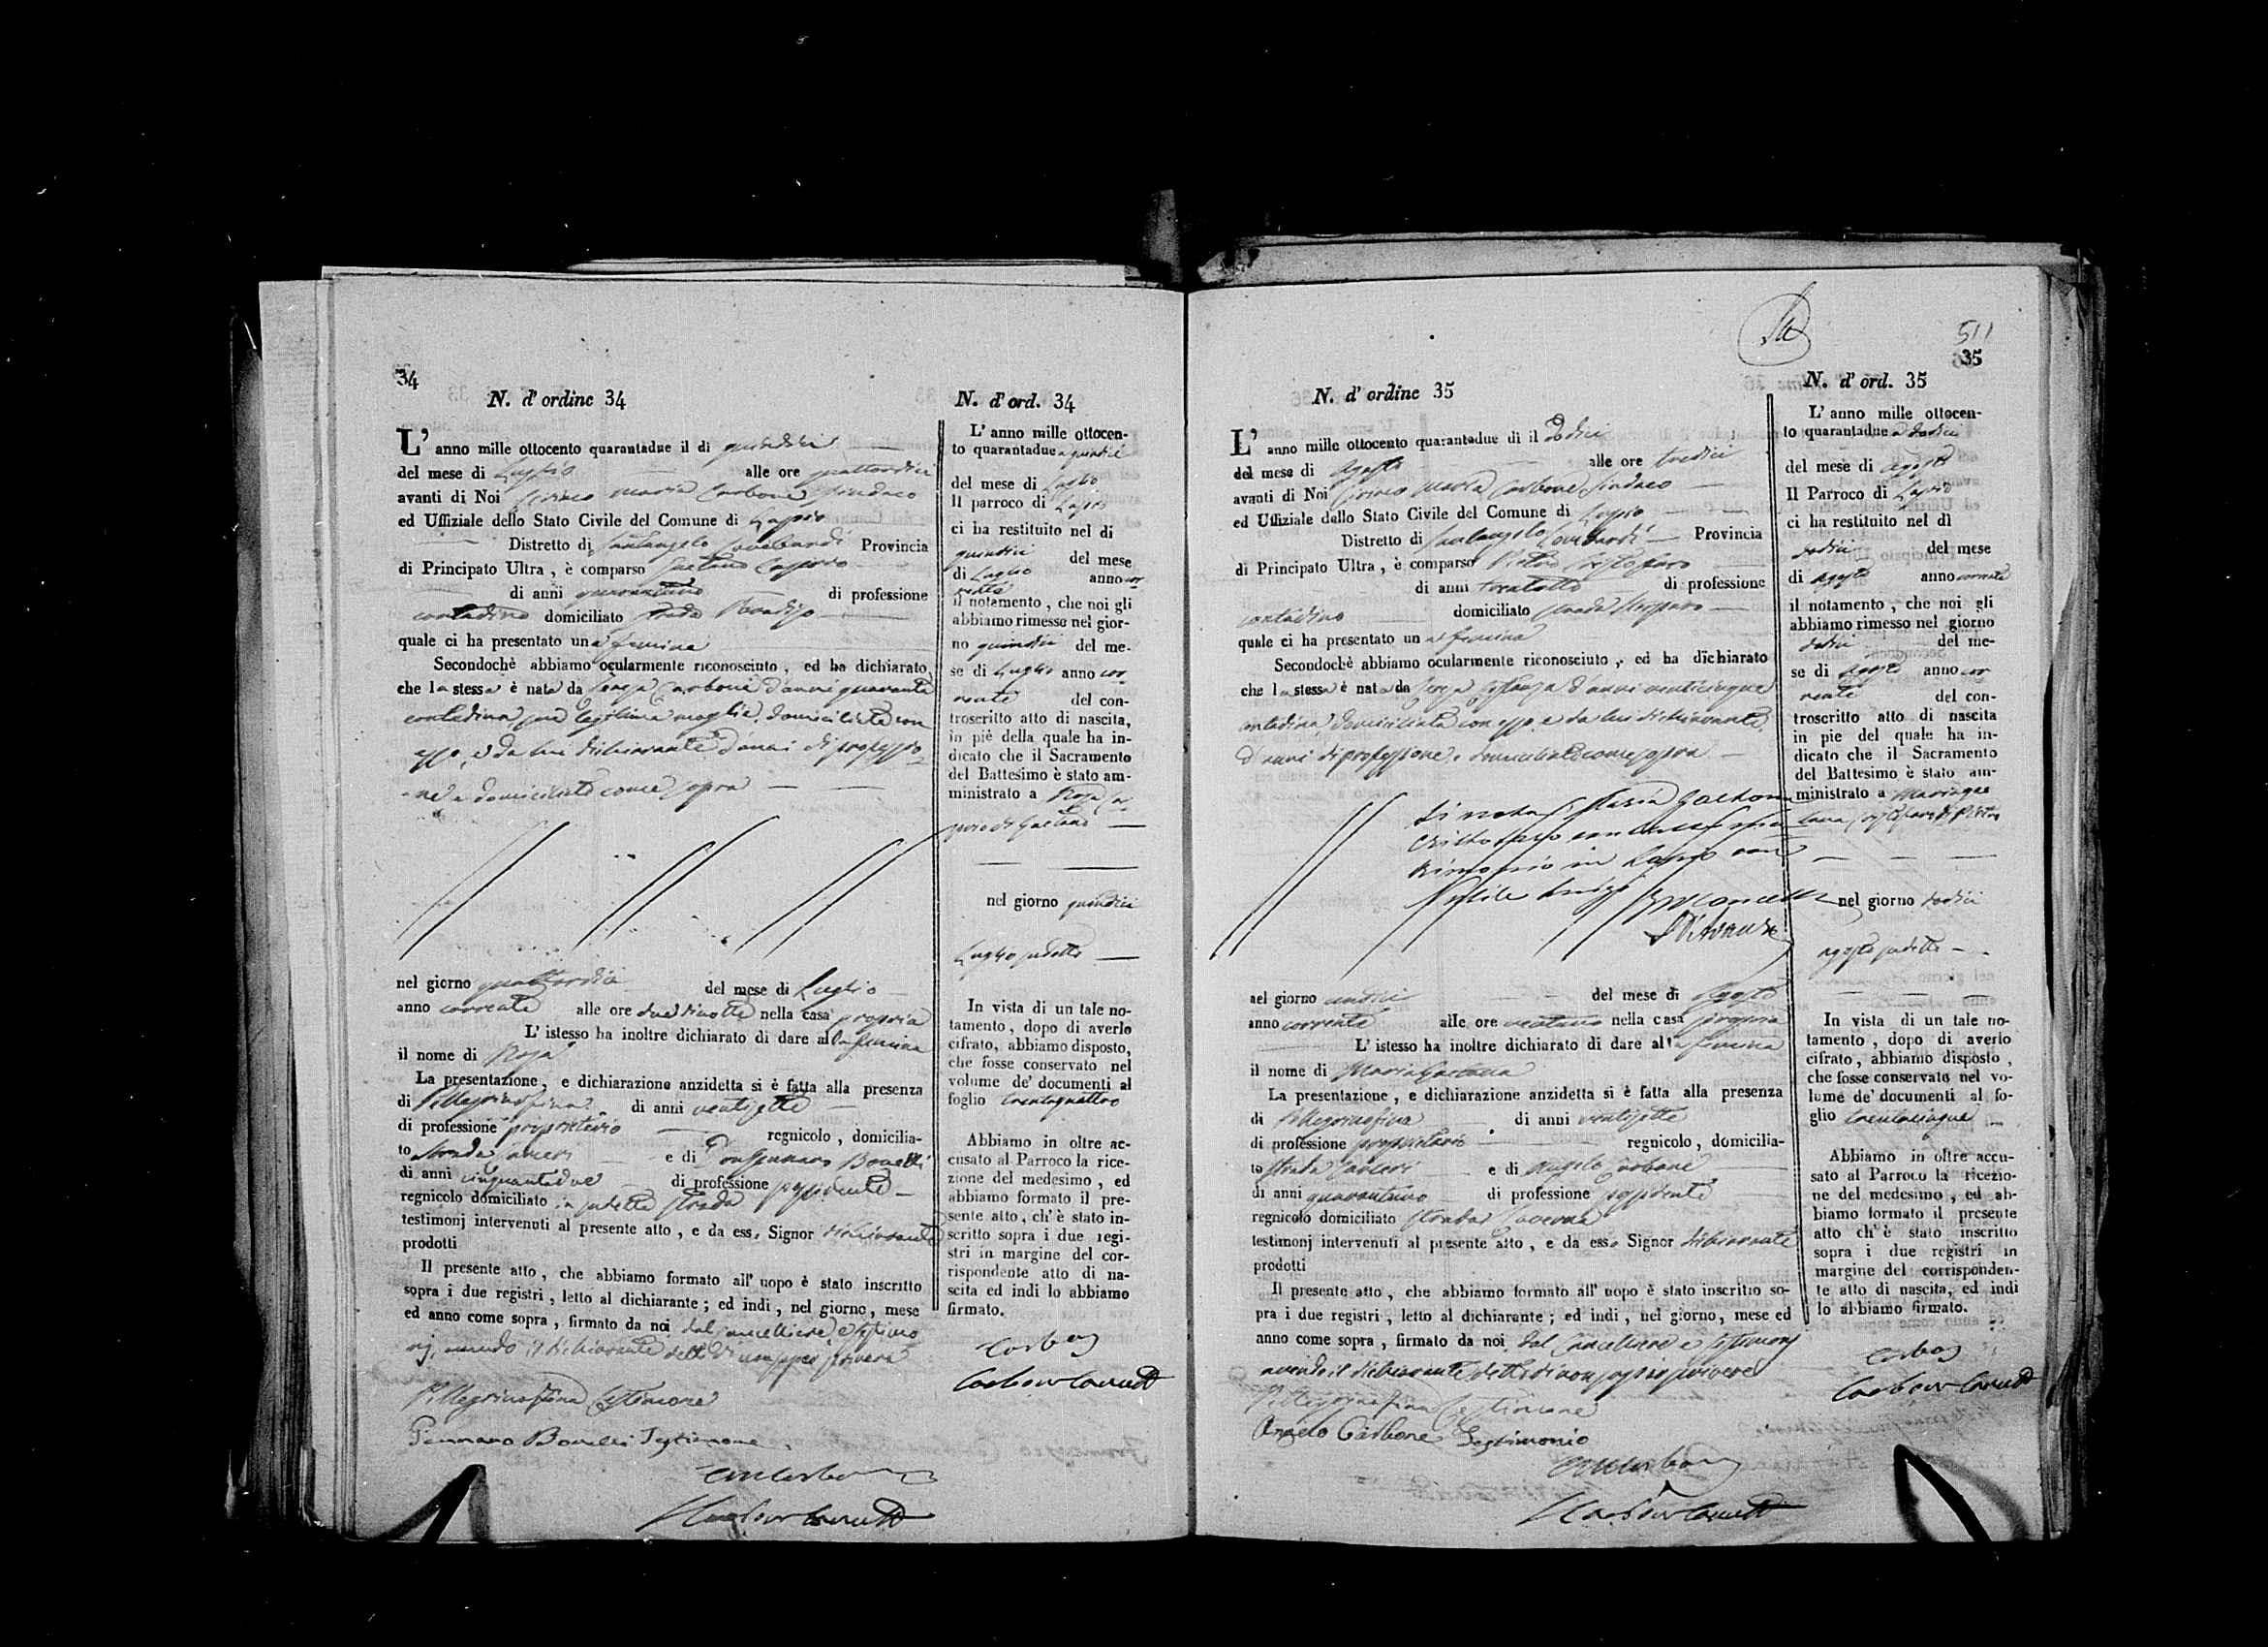 34
N. d' ordine 34
L' anno mille ottocento quarantadue il di quindici
del mese di Luglio alle ore quattordici
avanti di Noi Ciriaco Maria Carbone Sindaco
ed Uffiziale dello Stato Civile del Comune di Lapio
Distretto di Santangelo Lombardi Provincia
di Principato Ultra , è comparso Gaetano
di anni quarantuno di professione
contadino domiciliato strada
quale ci ha presentato una femina
Secondochè abbiamo ocularmente riconosciuto , ed ha dichiarato
che la stessa è nata da Carbone d'anni quaranta
contadina sua legittima moglie, domiciliata con
esso, e da lui dichiarante d'anni di professio
-ne e domiciliato come sopra
nel giorno quattordici del mese di Luglio
anno corrente alle ore due di notte nella casa propria
L' istesso ha inoltre dichiarato di dare alla femina
il nome di Rosa
La presentazione, e dichiarazione anzidetta si è fatta alla presenza
di Pellegrino Fina di anni ventisette
di professione proprietario regnicolo , domicilia-
to strada e di Don Gennaro Bonelli
di anni cinquantadue di professione possidente
regnicolo domiciliato in sudetta strada
testimonj intervenuti al presente atto , e da esso Signor dichiarante
prodotti
Il presente atto, che abbiamo formato all' uopo è stato inscritto
sopra i due registri , letto al dichiarante ; ed indi , nel giorno, mese
ed anno come sopra , firmato da noi dal cancelliere e testimo
nj, avendo il dichiarante detto di non saper scrivere
Pellegrino Fina testimone
Gennaro Bonelli Testimone
N. d' ord. 34
L' anno mille ottocen-
to quarantadue a quindici
del mese di Luglio
Il parroco di Lapio
ci ha restituito nel di
quindici del mese
di Luglio anno cor
rente
il notamento , che noi gli
abbiamo rimesse nel gior-
no quindici del me-
se di Luglio anno cor
rente del con-
troscritto atto di nascita,
in piè della quale ha in-
dicato che il Sacramento
del Battesimo è stato am-
ministrato a Rosa
di Gaetano
nel giorno quindici
Luglio sudetto
In vista di un tale no-
tamento , dopo di averlo
cifrato, abbiamo disposto,
che fosse conservato nel
volume de' documenti al
foglio trentaquattro
Abbiamo in oltre ac-
cusato al Parroco la rice-
zione del medesimo , ed
abbiamo formato il pre-
sente atto, ch' è stato in-
scritto sopra i due regi-
stri in margine del cor-
rispondente atto di na-
scita ed indi lo abbiamo
firmato.
511
35
N. d' ordine 35
L' anno mille ottocento quarantadue di il dodici
del mese di Agosto alle ore tredici
avanti di Noi Ciriaco Maria Carbone Sindaco
ed Uffiziale dello Stato Civile del Comune di Lapio
Distretto di Santangelo Lombardi Provincia
di Principato Ultra , è comparso Pietro Cristofaro
di anni trentotto di professione
contadino domiciliato strada
quale ci ha presentato una femina
Secondochè abbiamo ocularmente riconosciuto , ed ha dichiarato
che la stessa è nata da d'anni venticinque
contadina, domiciliata con esso, e da lui dichiarante,
d'anni di professione, e domiciliato come sopra
Si nota Maria Gaetana
Cristofaro
in Lapio con
nel giorno undici del mese di Agosto
anno corrente alle ore ventuno nella casa propria
L' istesso ha inoltre dichiarato di dare alla femina
il nome di Maria Gaetana
La presentazione, e dichiarazione anzidetta si è fatta alla presenza
di Pellegrino Fina di anni ventisette
di professione proprietario regnicolo, domicilia-
to strada e di Angelo Carbone
di anni quarantuno di professione possidente
regnicolo domiciliato strada Taverna
testimonj intervenuti al presente atto , e da esso Signor dichiarante
prodotti
Il presente atto, che abbiamo formato all' uopo è stato inscritto so-
pra i due registri , letto al dichiarante ; ed indi, nel giorno, mese ed
anno come sopra , firmato da noi dal Cancelliere e testimonj
avendo il dichiarante detto di non saper scrivere
Pellegrino Fina testimone
Angelo Carbone Testimonio
N. d' ord. 35
L' anno mille ottocen-
to quarantadue a dodici
del mese di Agosto
Il Parroco di Lapio
ci ha restituito nel dì
dodici del mese
di Agosto anno corrente
il notamento , che noi gli
abbiamo rimesso nel giorno
dodici del me-
se di Agosto anno cor
rente del con-
troscritto atto di nascita
in pie del quale ha in-
dicato che il Sacramento
del Battesimo è stato am-
ministrato a Maria Gae
tana Cristofaro di Pietro
nel giorno dodici
agosto sudetto
In vista di un tale no-
tamento , dopo di averlo
cifrato, abbiamo disposto ,
che fosse conservato nel vo-
lume de' documenti al fo-
glio trentacinque
Abbiamo in oltre accu-
sato al Parroco la ricezio-
ne del medesimo , ed ab-
biamo formato il presente
atto ch' è stato inscritto
sopra i due registri in
margine del corrisponden-
te atto di nascita, ed indi
lo abbiamo firmato.